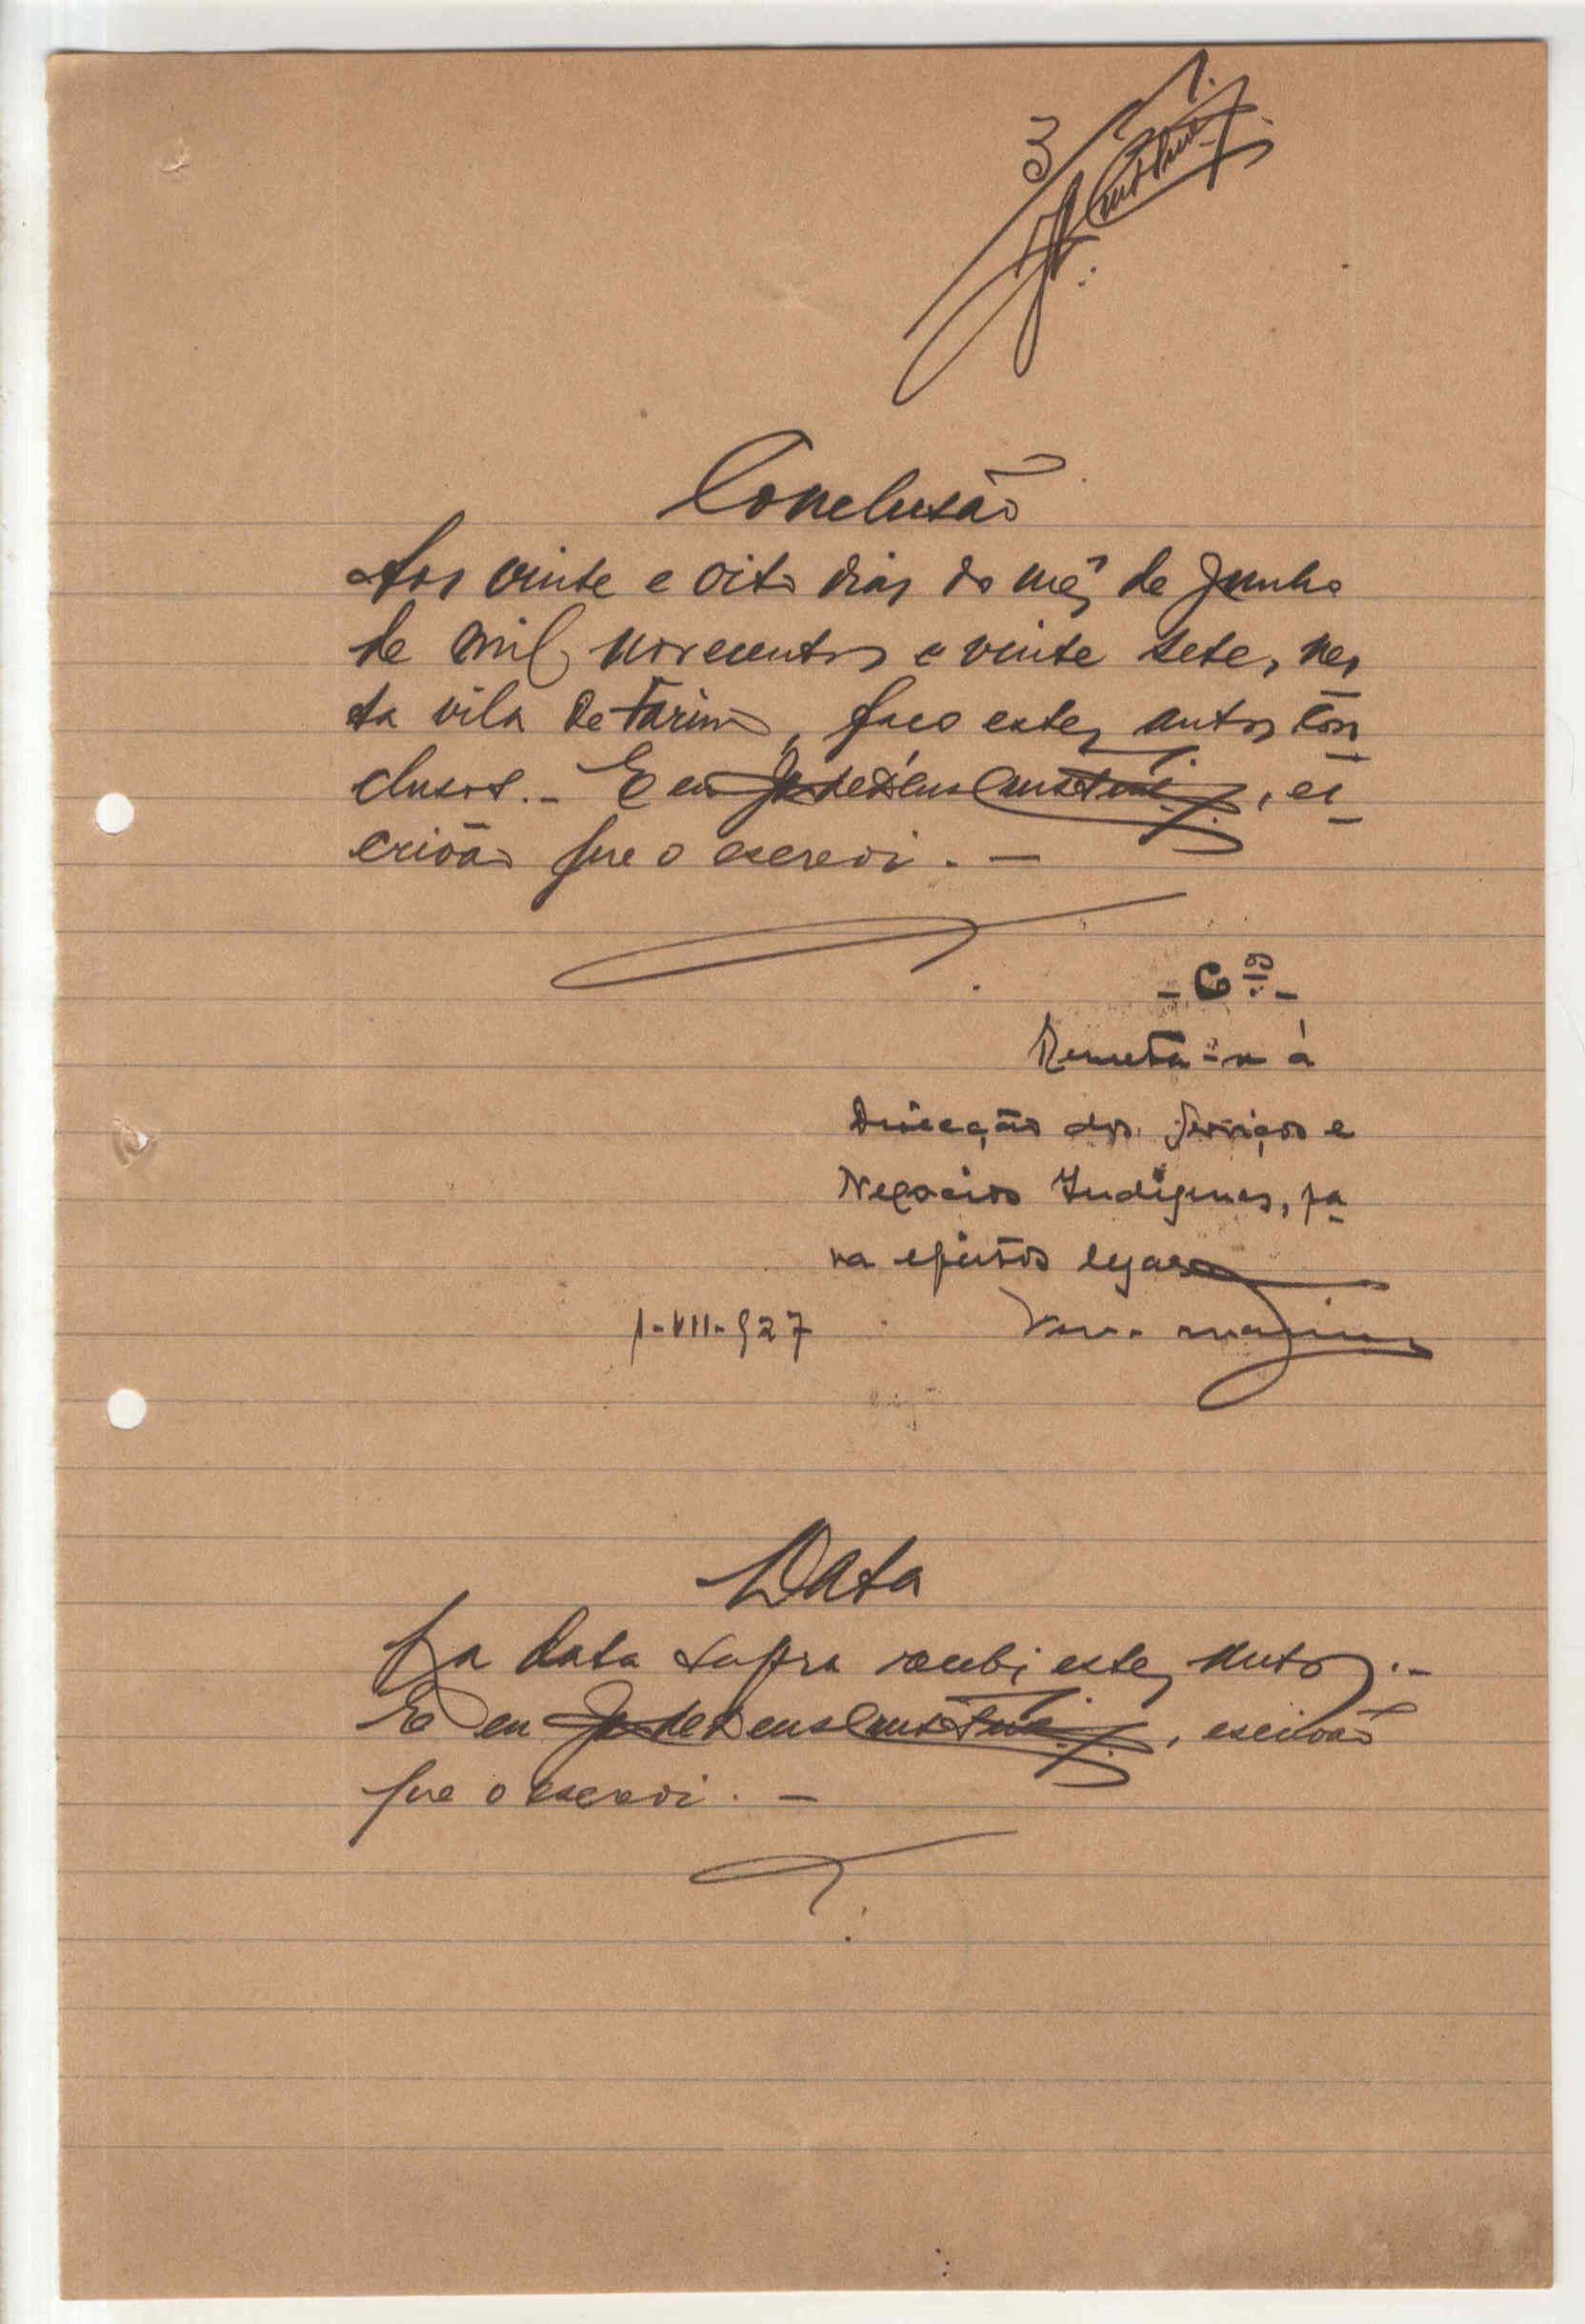 3
Conclusão
Aos vinte e oito dias do mês de Junho
de mil novecentos e vinte sete, nes
ta vila de Farim, faço estes autos con
clusos. - E eu João de Deus, es
crivão que o escrevi. —
Remeta-se à
Direcção dos Serviços e
Negocios Indigenas, pa
ra efeitos legaes
1-VII-927
Data
Na data supra recebi estes autos. -
E eu João de Deus, escrivão
que o escrevi. —